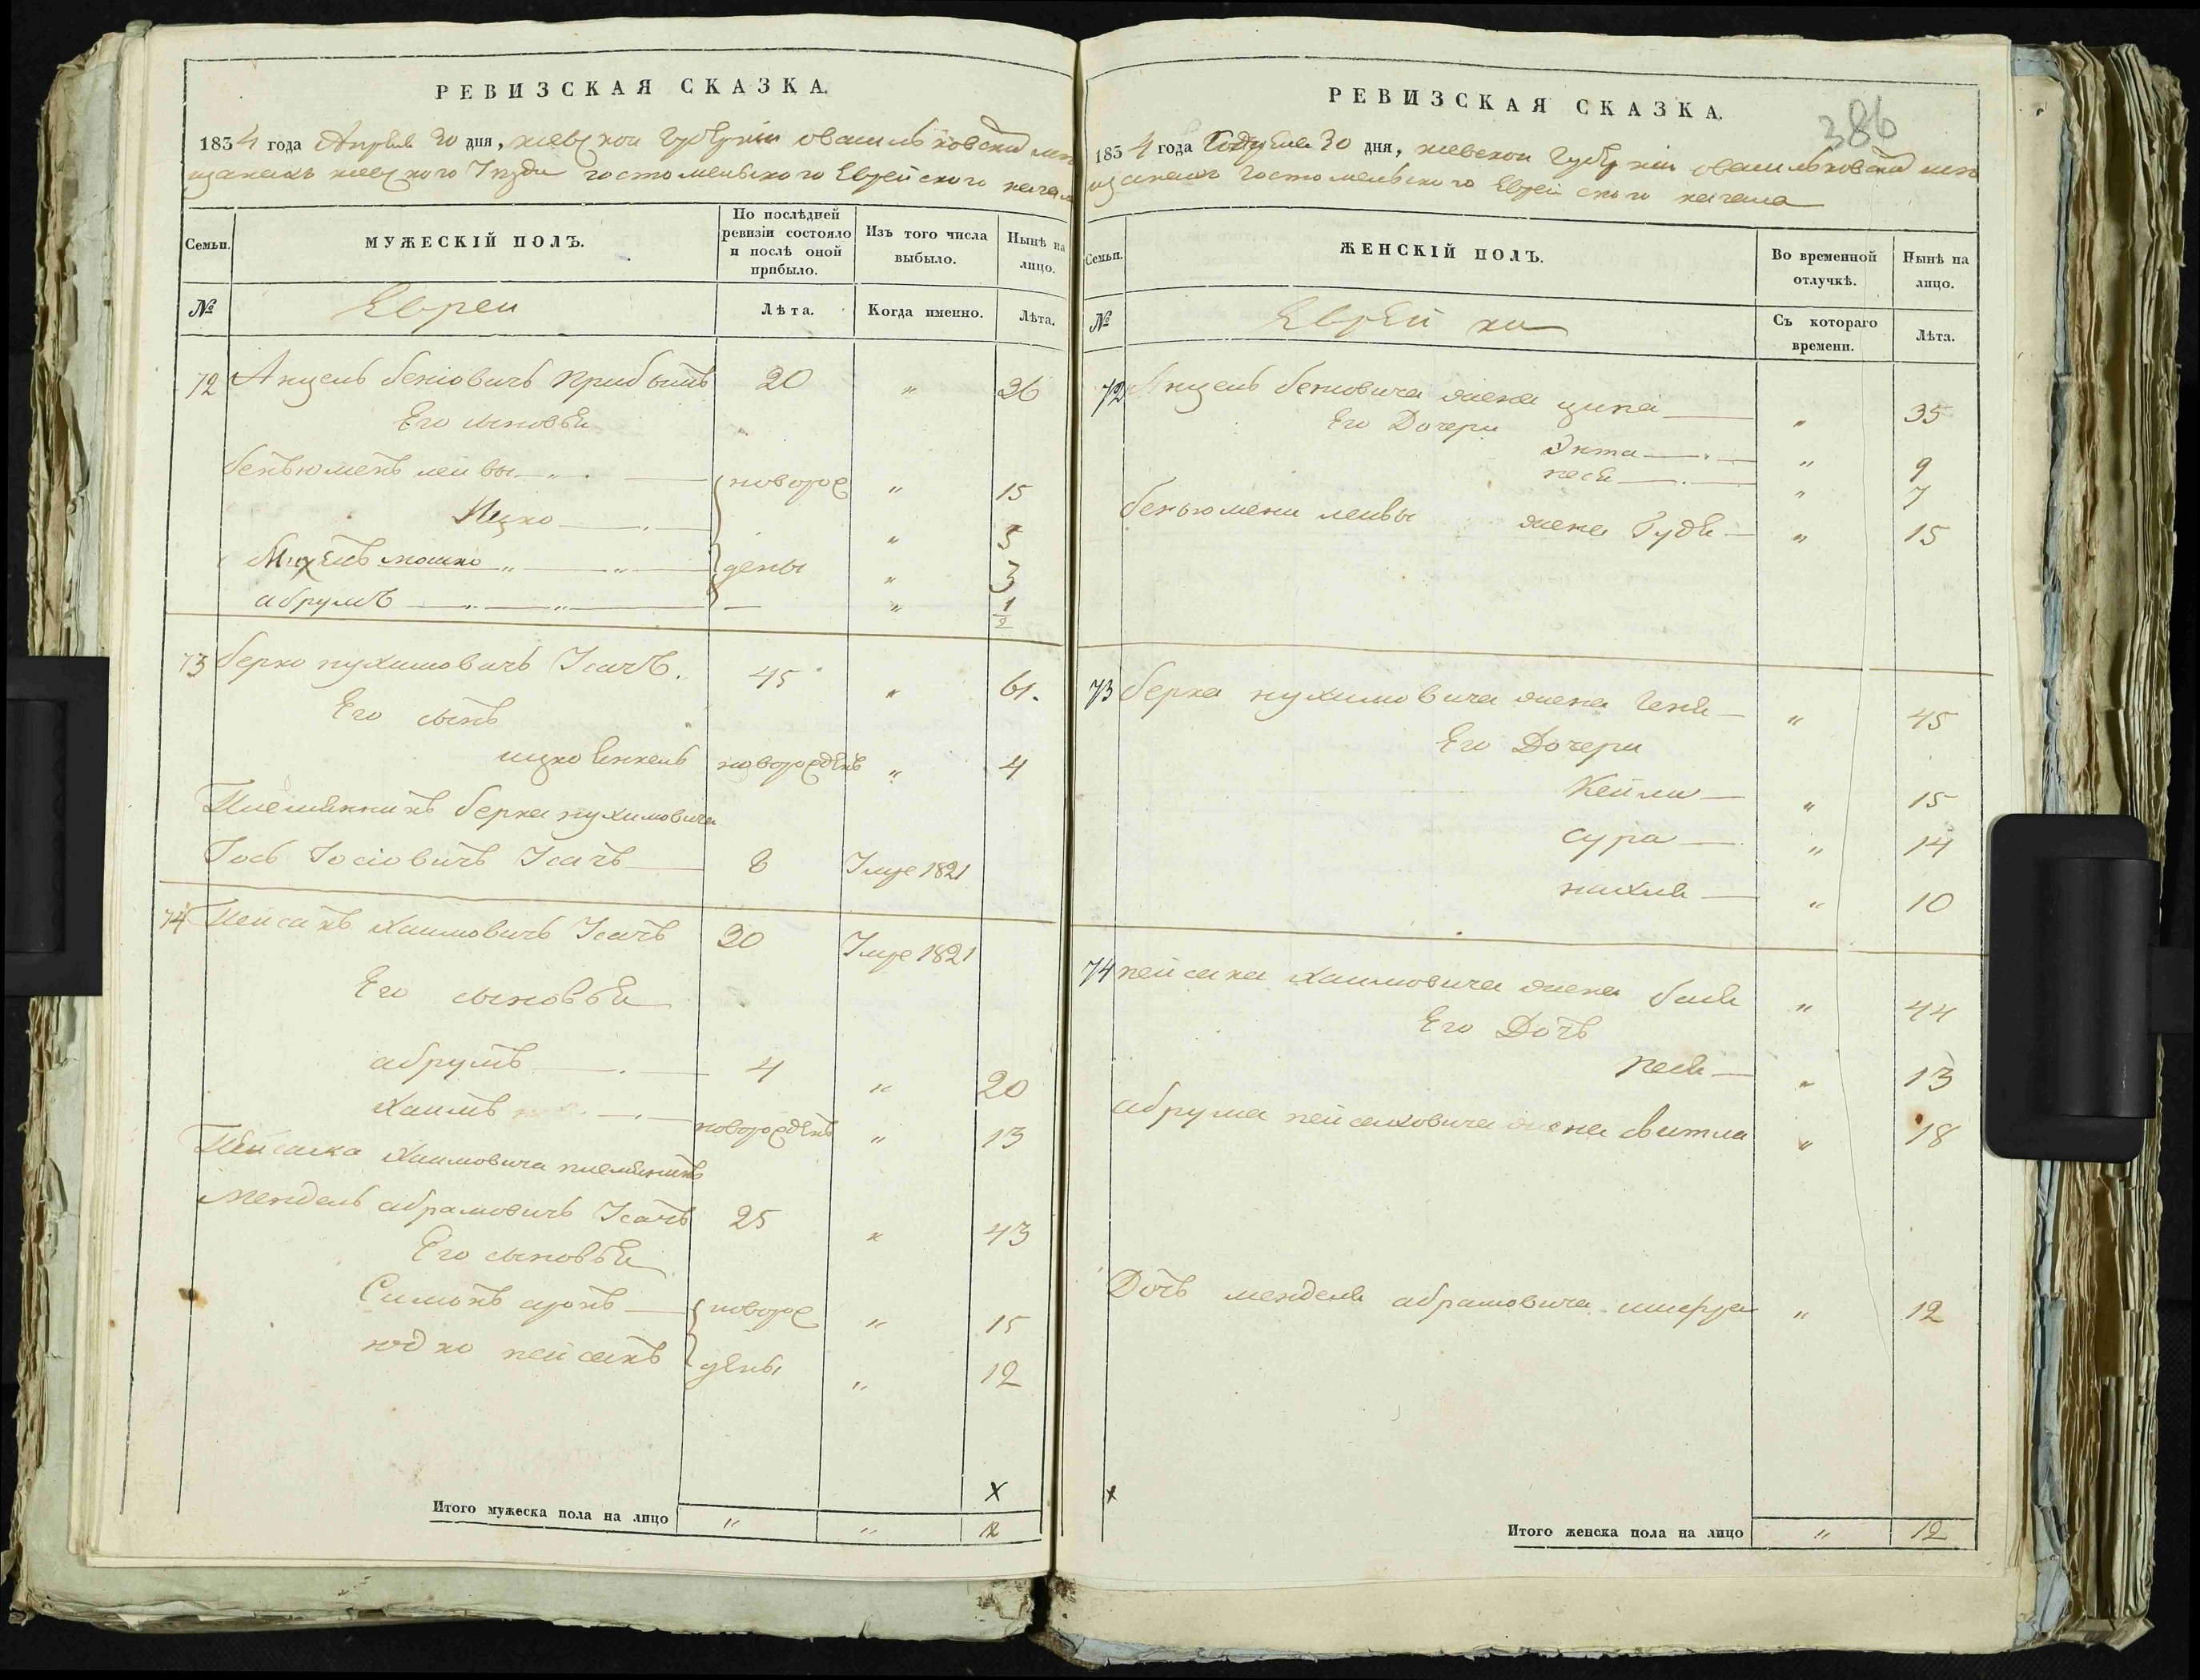 РЕВИЗСКАЯ СКАЗКА.
1834 года Апреля 30 дня, киевской Губернии о васильковских мещ
Киевского Уезда гостомельского Еврейского кагала
Семьи.
МУЖЕСКІЙ ПОЛЪ.
По послѣдней ревизіи состояло и послѣ оной прибыло.
Изъ того числа выбыло.
Нынѣ на лицо.
№
Евреи
Лѣта.
Когда именно.
Лѣта.
72 Анцель беніовичъ 20 " 26
Его сыновья
беньюменъ лейвы " новорож " 15
Ицко " 5
Мошко " " дены " 3
абрумъ " " 1/2
73 берко нухимовичъ Исачъ. 45 " 61.
Его сынъ
ицко Енкель новорожденъ " 4
Племянникъ берка нухимовича
Іось Іосіовичъ Исачъ 8 Умре 1821
74 Пейсахъ Хаимовичъ Исачъ 30 Умре 1821
Его сыновья
абрумъ 4 " 20
Хаимъ новорожденъ " 13
Пейсаха Хаимовича племяникъ
Мендель абрамовичъ Исачъ 25 " 43
Его сыновья
Симонъ аронъ новорож " 15
юдко пейсахъ дены " 12
x
Итого мужеска пола на лицо " " 12
РЕВИЗСКАЯ СКАЗКА.
386
1834 года 30 дня, киевской Губернии о васильковских мещ
Гостомельского Еврейского кагала
Семьи.
ЖЕНСКІЙ ПОЛЪ.
Во временной отлучкѣ.
Нынѣ на лицо.
№
Еврейки
Съ котораго времени.
Лѣта.
72 Анцель беніовича жена ципа " 35
Его Дочери
Энта " 9
песя " 7
беньюмена лейвы жена Гудя " 15
73 берка нухимовича жена Геня " 45
Его Дочери
Кейли " 15
сура " 14
нахля " 10
74 пейсаха Хаимовича жена бася " 44
Его Дочь
песя " 13
абрума пейсаховича жена свитла " 18
Дочь менделя абрамовича шифра " 12
x
Итого женска пола на лицо " 12